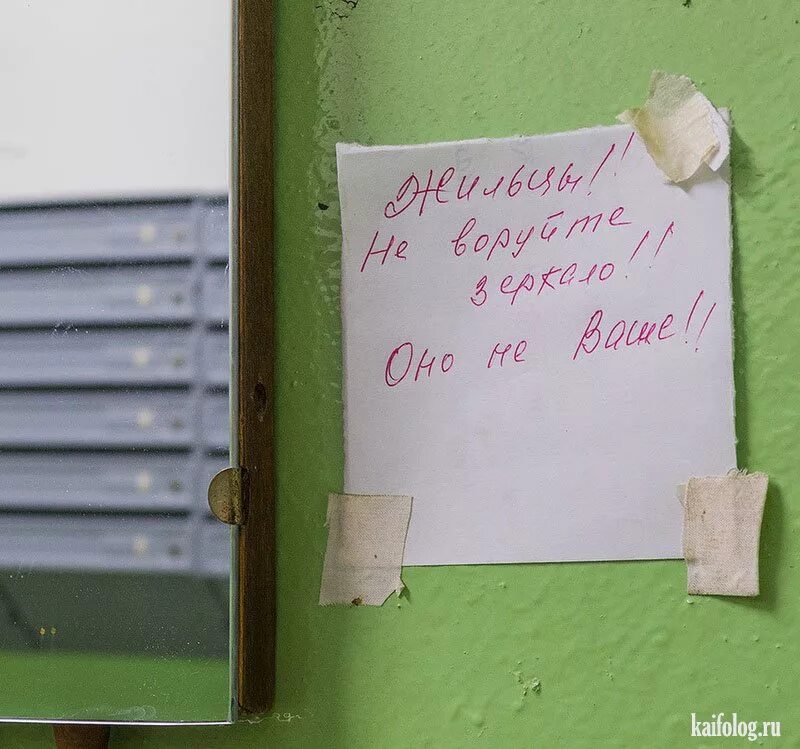 Жильцы!!
Не воруйте
зеркало!!
Оно не Ваше!!
kaifolog.ru